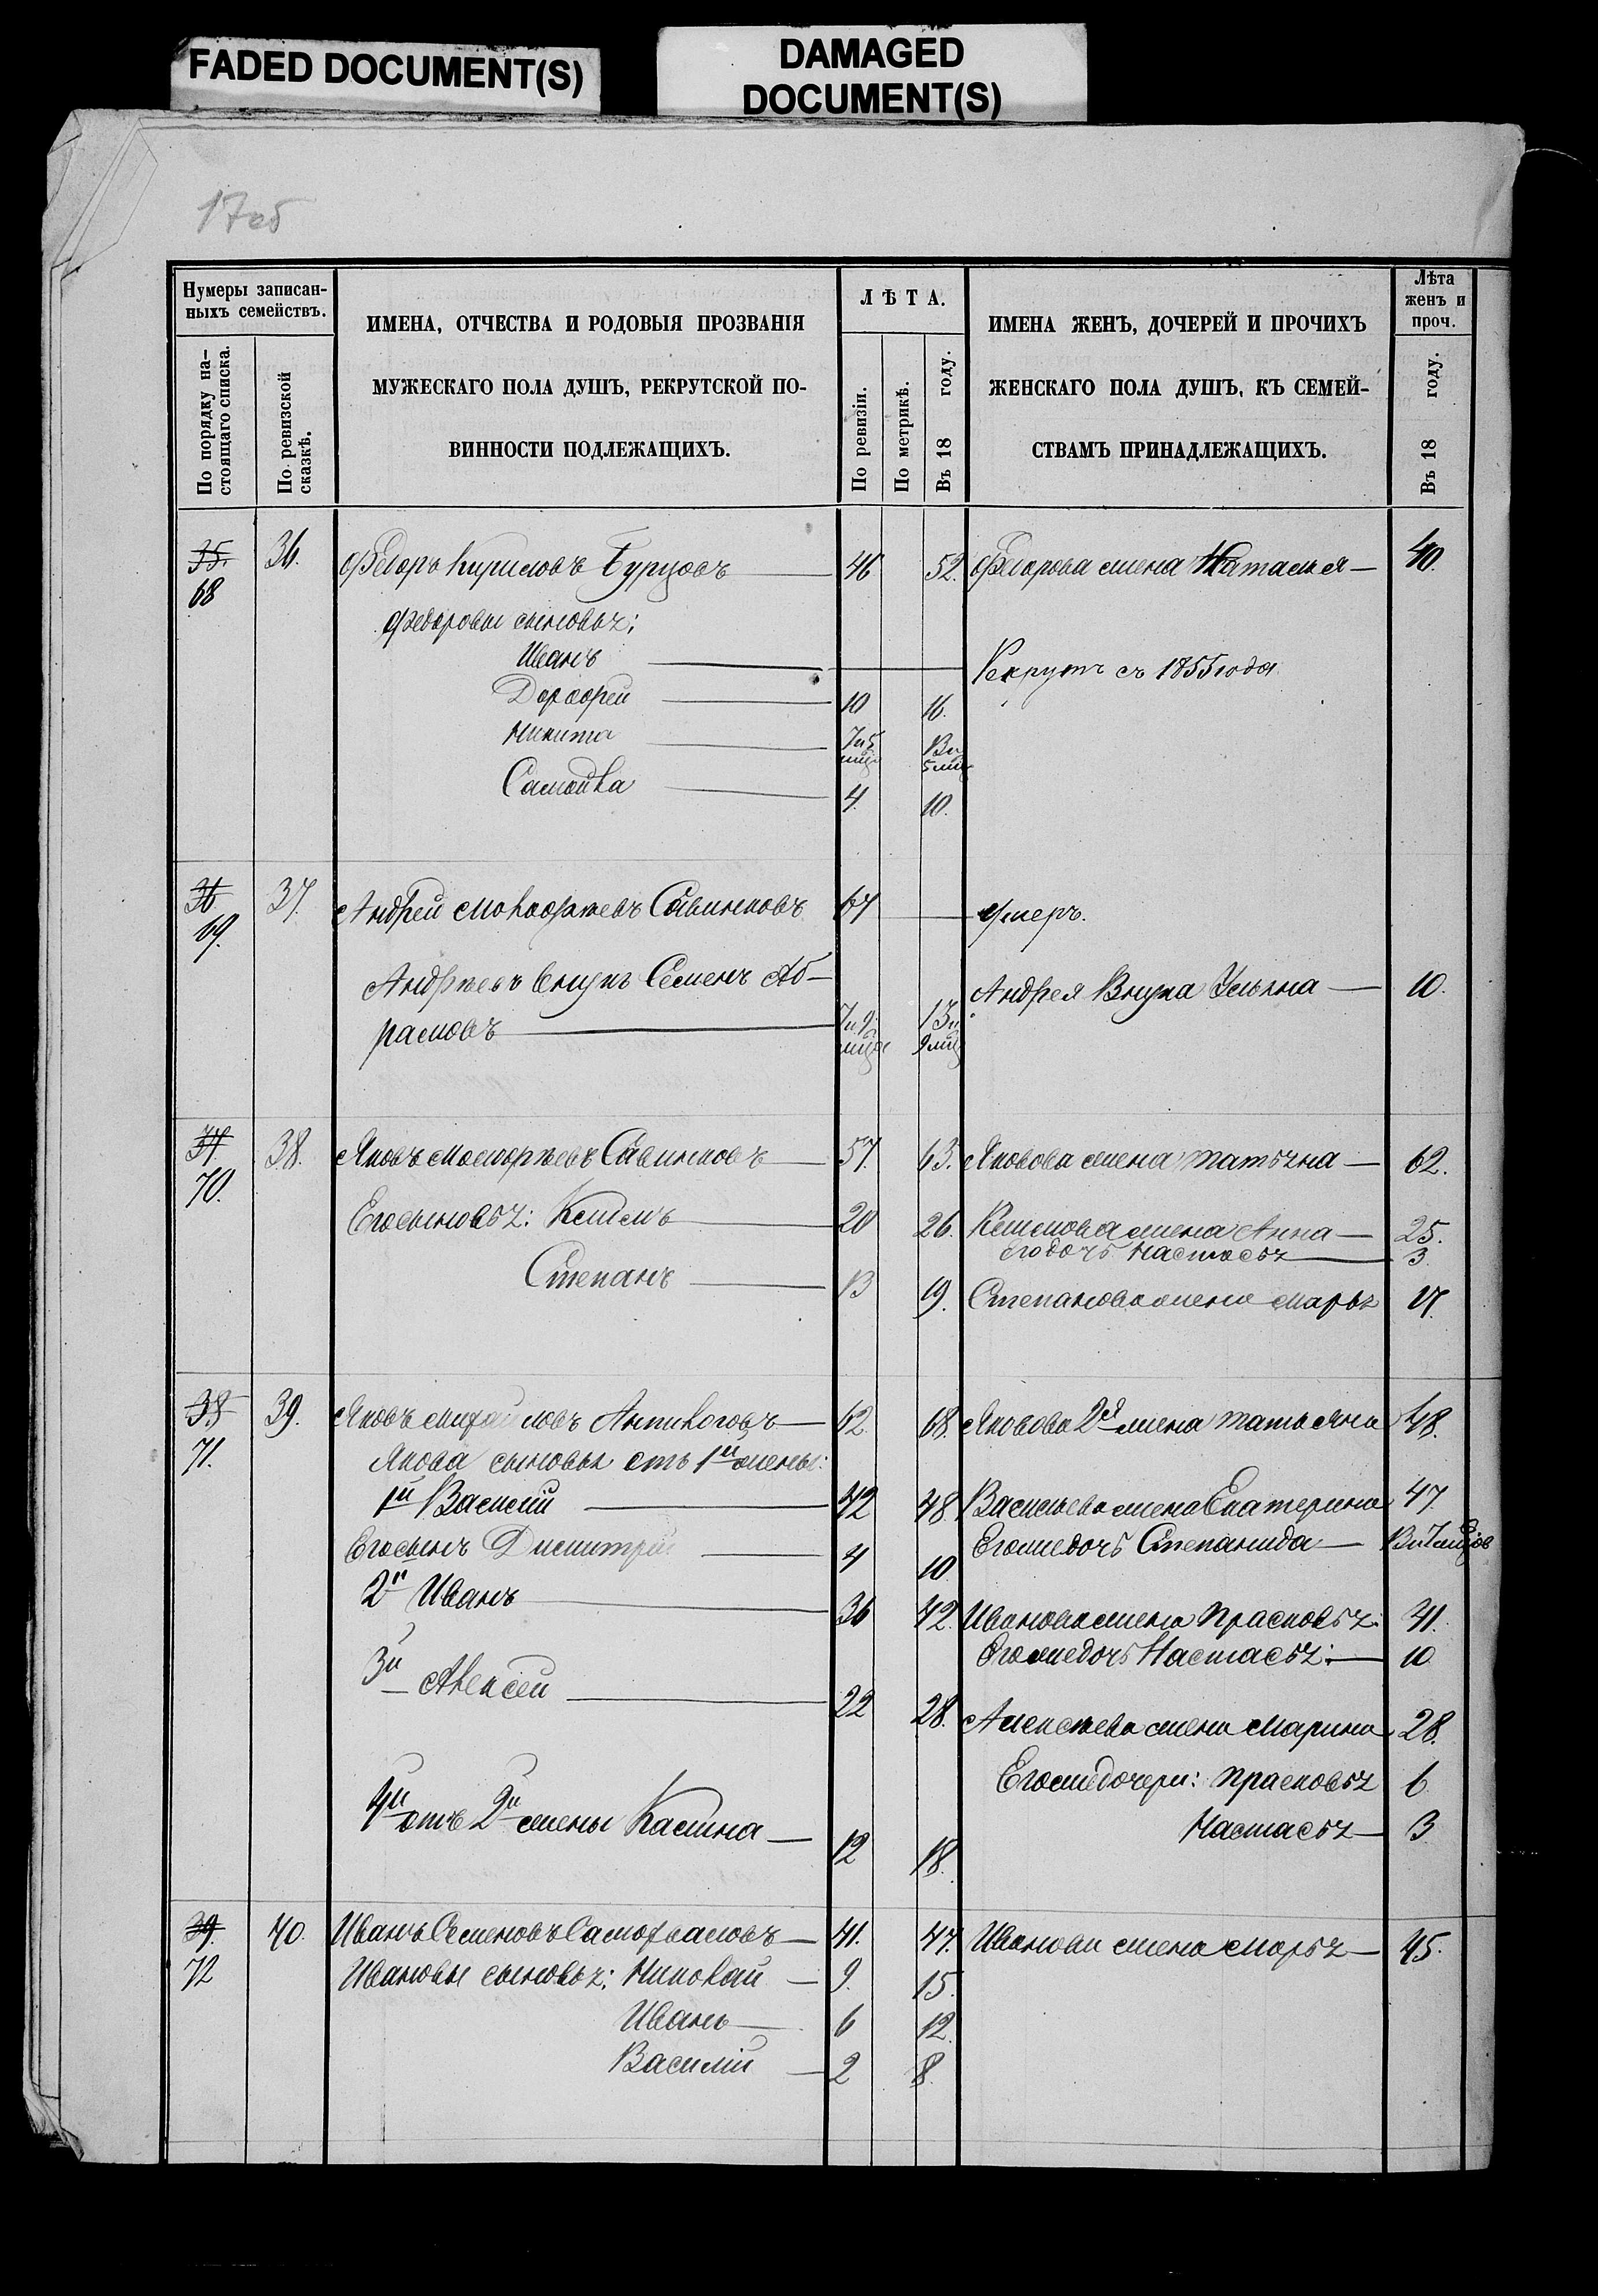 FADED DOCUMENT(S)
DAMAGED
DOCUMENT(S)
17об
Нумеры записан-
ныхъ семействъ.
По порядку на-
стоящаго списка.
По ревизской
сказкѣ.
ИМЕНА, ОТЧЕСТВА И РОДОВЫЯ ПРОЗВАНІЯ
МУЖЕСКАГО ПОЛА ДУШЪ, РЕКРУТСКОЙ ПО-
ВИННОСТИ ПОДЛЕЖАЩИХЪ.
ЛѢТА.
По ревизіи.
По метрикѣ.
Въ 18 году.
ИМЕНА ЖЕНЪ, ДОЧЕРЕЙ И ПРОЧИХЪ
ЖЕНСКАГО ПОЛА ДУШЪ, КЪ СЕМЕЙ-
СТВАМЪ ПРИНАДЛЕЖАЩИХЪ.
Лѣта
женъ и
проч.
Въ 18 году.
35. 36. Федоръ Кириловъ Бурцовъ — 46 52. Федорова жена Наталья — 40.
68
Федоровы сыновья:
Иванъ — Рекрутъ съ 1855 года
Дорофей — 10 16.
Никита — 7 и 5 мцъ 13 и 5 мцъ
Самойла — 4. 10.
36 37. Андрей Савинковъ 67 — умеръ.
69.
Андреевъ внукъ Семенъ Аб-
рамовъ — 7 и 9 мцъ 13 и 9 мцъ
Андрея внука Ульяна — 10.
37. 38. Яковъ Савинковъ — 57. 63. Яковова жена Татьяна — 62.
70.
Его сыновья: — 20 26. жена Анна — 25.
Его дочь Настасья — 3
Степанъ — 13 19. Степанова жена Марья 17.
38 39. Яковъ Михайловъ — 62. 68. Яковова 2я жена Татьяна 48.
71.
Якова сыновья отъ 1й жены:
1й Василій — 42 48. Васильева жена Екатерина 47
Его сынъ Димитрій — 4 10 Его же дочь Степанида —
2й Иванъ — 36 42. Иванова жена Прасковья 41.
Его же дочь Настасья — 10
3й Алексей — 22 28. Алексеева жена Марина 28.
Его же дочери: Прасковья 6
Настасья — 3
4й отъ 2й жены — 12 18.
39. 40. Иванъ Семеновъ Самохваловъ — 41. 47. Иванова жена Марья — 45.
72
Ивановы сыновья: Николай — 9. 15.
Иванъ — 6 12.
Василій — 2 8.